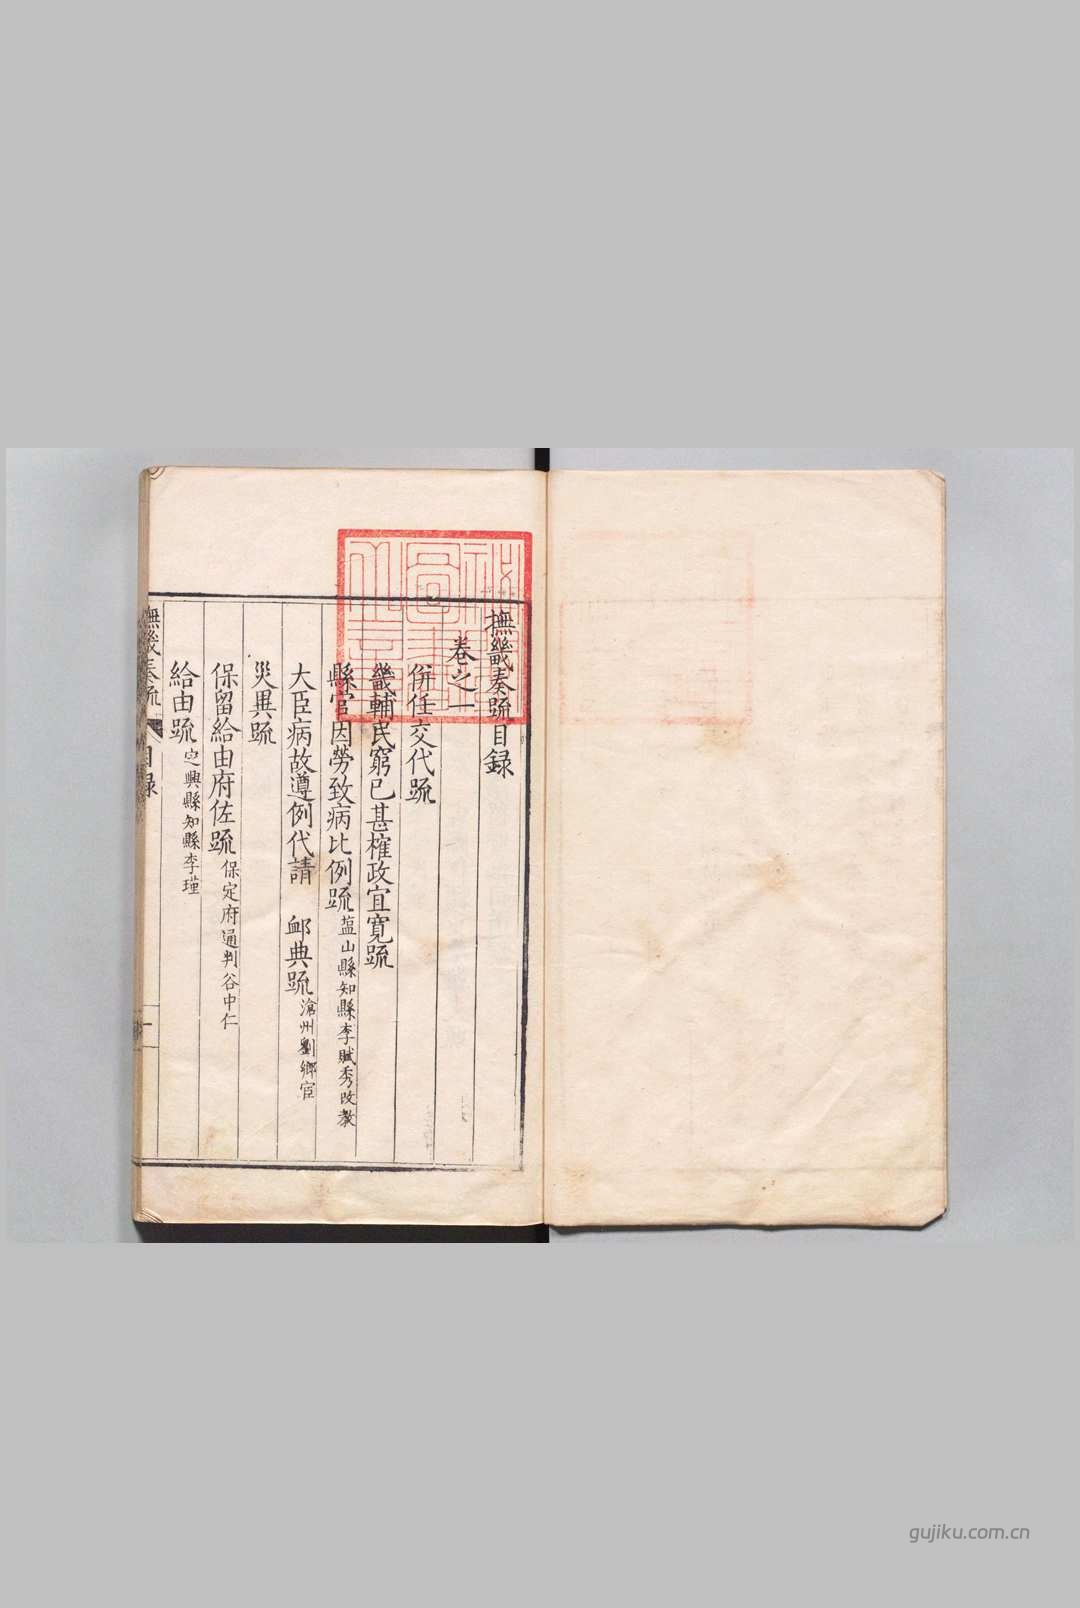 撫畿奏疏目録
卷之一
併任交代疏
畿輔民窮已甚榷政宜寬疏
縣官因勞致病比例疏 盐山縣知縣李賦秀改教
大臣病故遵例代請 卹典疏 滄州劉鄉宦
災異疏
保留給由府佐疏 保定府通判谷中仁
給由疏 定興縣知縣李瑾
撫畿奏疏 目録 一
gujiku.com.cn